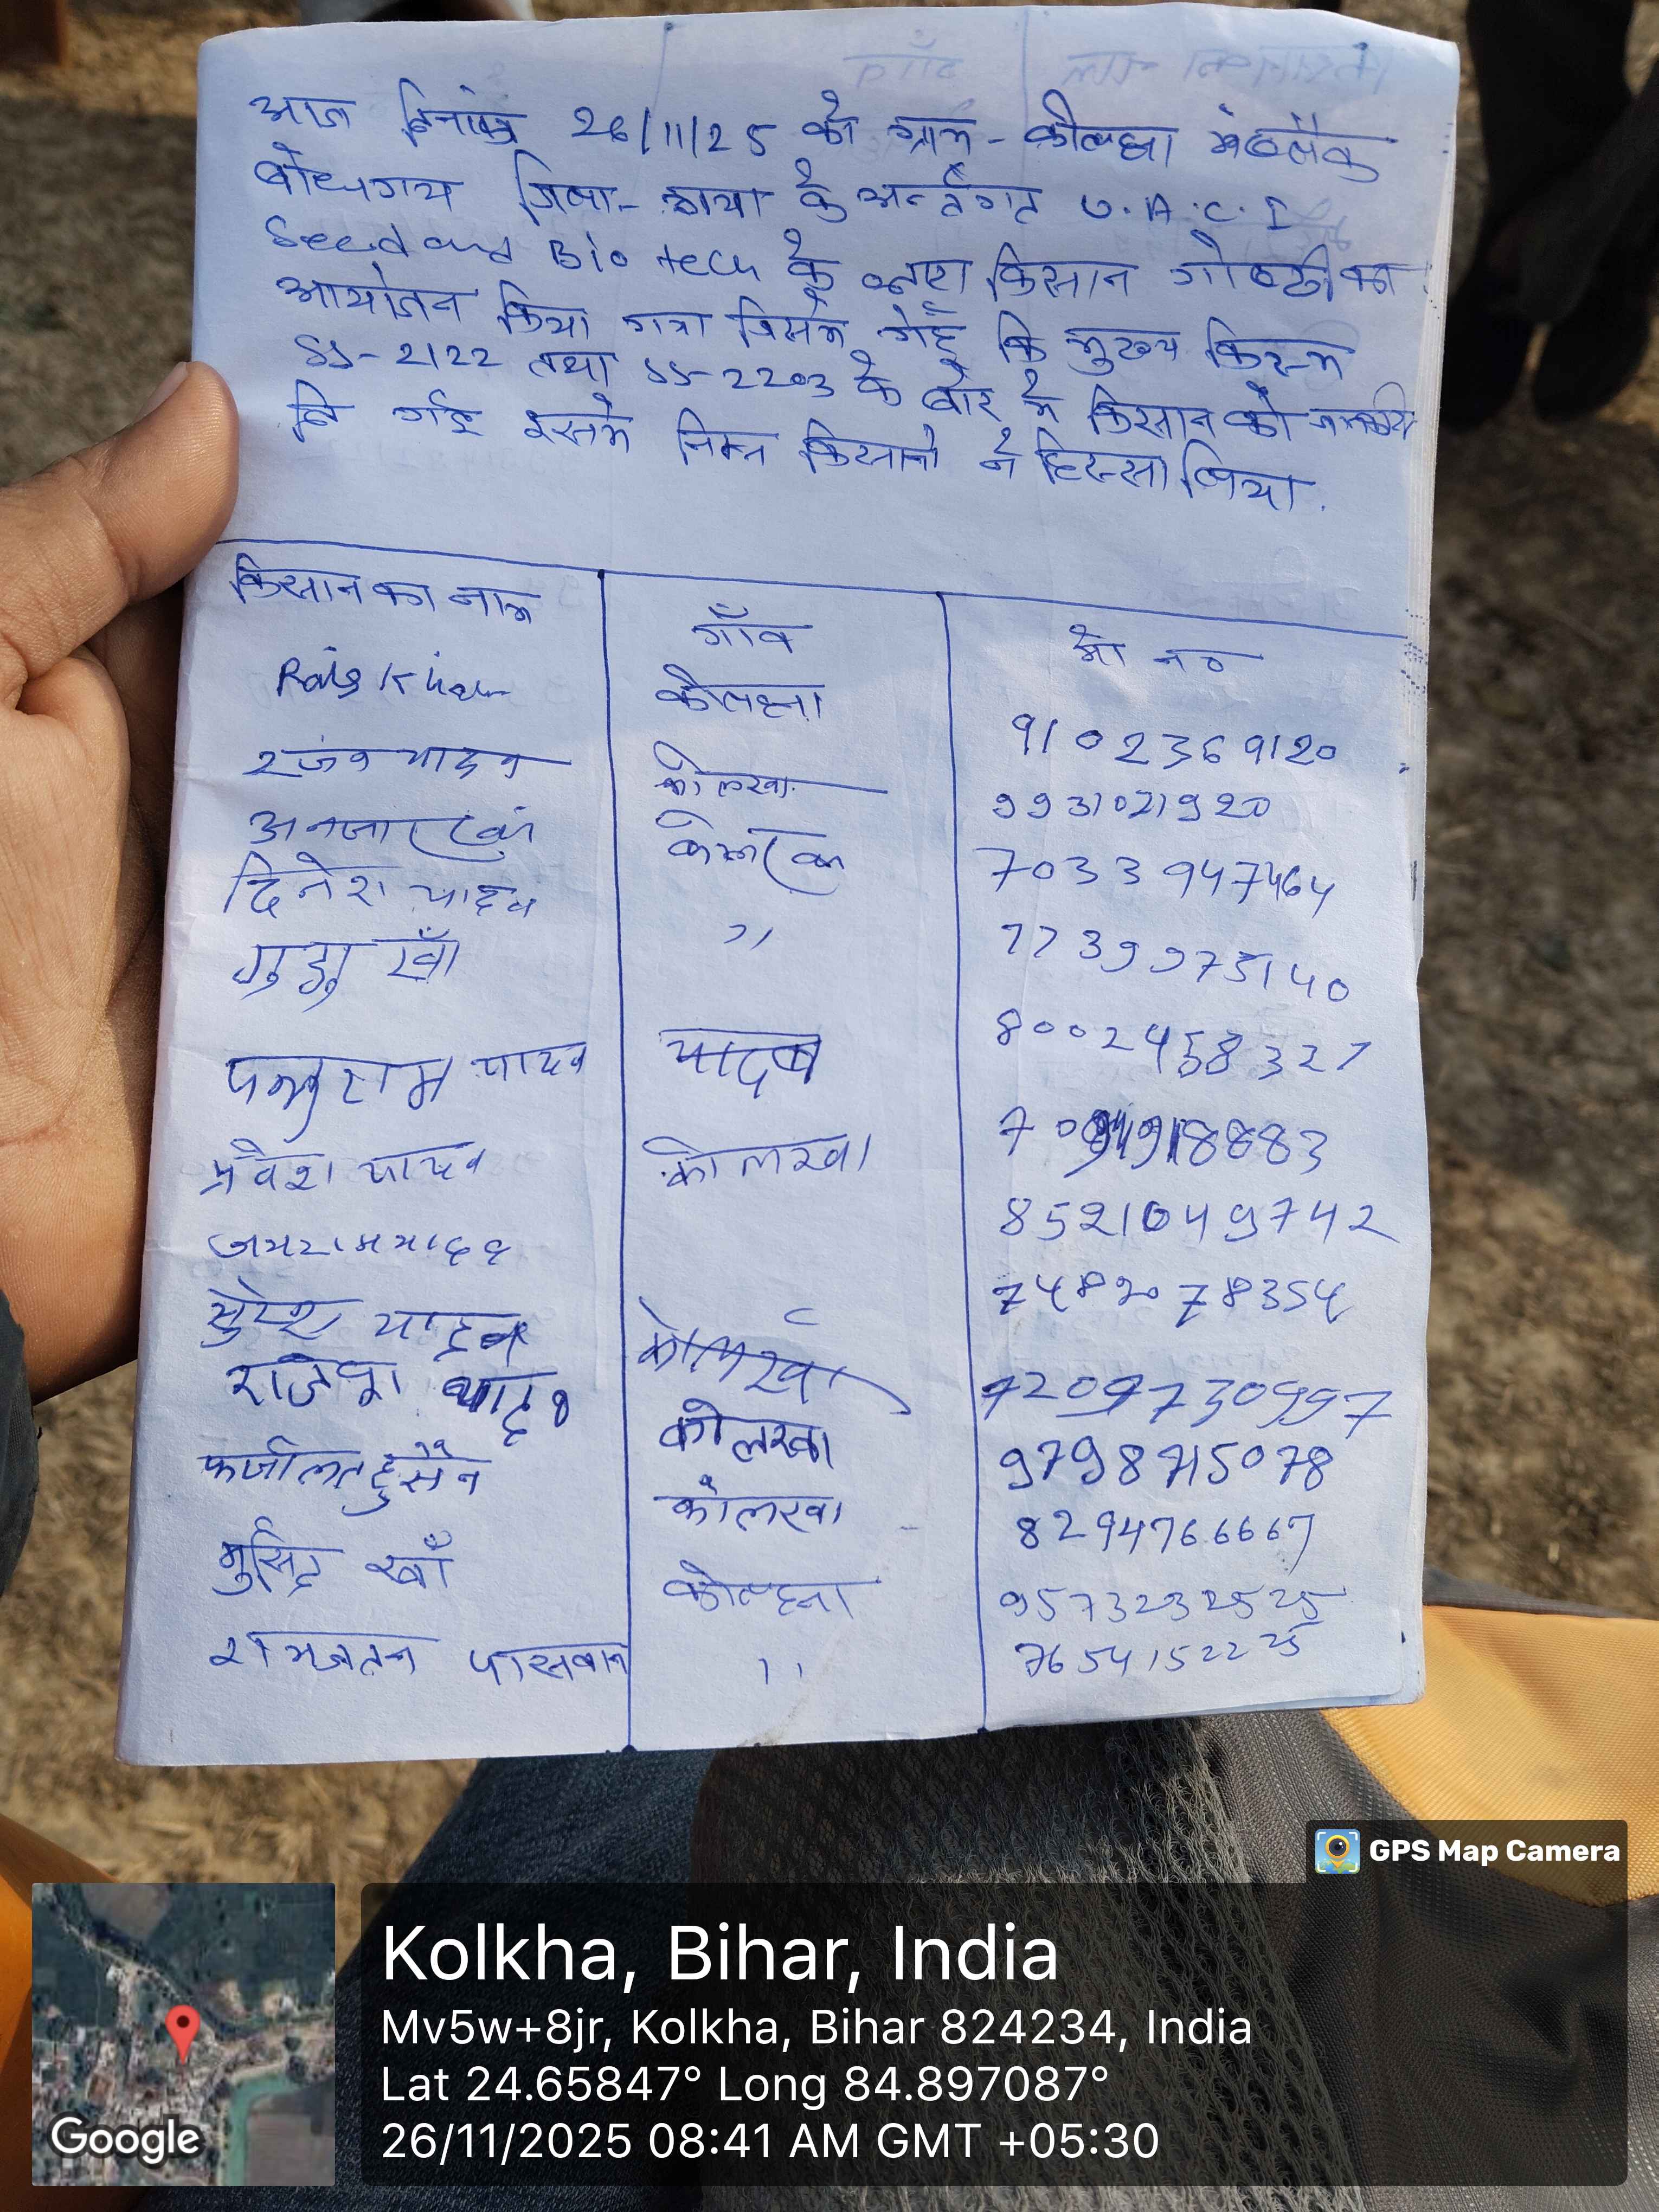 आज दिनांक 26/11/25 को ग्राम - कोल्हा
बोधगया जिला - गया के अर्न्तगत U.A.C.I
Seed and Bio tech के द्वारा किसान गोष्ठी का
आयोजन किया गया जिसमे गेहूँ कि मुख्य किस्म
SS-2122 तथा SS-2203 के बारे मे किसान को जानकारी
दि गई इसमे निम्न किसानो ने हिस्सा लिया.
किसान का नाम गाँव मो न०
Rais Khan 9102369120
रंजन यादव कोलखा 9931021920
7033947464
दिनेश यादव 〃 7739975140
गुड्डु खाँ 8002458327
यादव यादव
प्रवेश यादव कोलखा 8521049742
जयराम यादव 7482078354
सुरेश यादव कोलखा 7209730997
राजेश यादव कोलखा 9798715078
फजीलत हुसैन कोलखा 8294766667
खाँ 9573232525
रामजतन पासवान 〃 7654152225
GPS Map Camera
Kolkha, Bihar, India
Mv5w+8jr, Kolkha, Bihar 824234, India
Lat 24.65847° Long 84.897087°
26/11/2025 08:41 AM GMT +05:30
Google